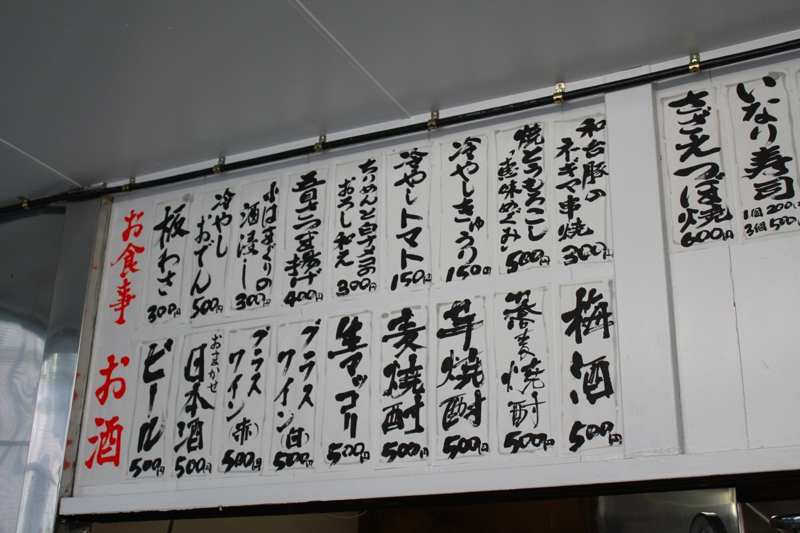 さざえつぼ焼
600円
いなり寿司
1個200円
3個500円
お食事
和台豚の
ネギマ串焼
300円
焼とうもろこし
恵味めぐみ
500円
冷やしきゅうり
150円
冷やしトマト
150円
ちりめんと白子の
おろし和え
300円
さつま揚げ
400円
小はまぐりの
酒浸し
300円
冷やし
おでん
500円
板わさ
300円
お酒
梅酒
500円
蕎麦焼酎
500円
芋焼酎
500円
麦焼酎
500円
生マッコリ
500円
グラス
ワイン(白)
500円
グラス
ワイン(赤)
500円
おまかせ
日本酒
500円
ビール
500円